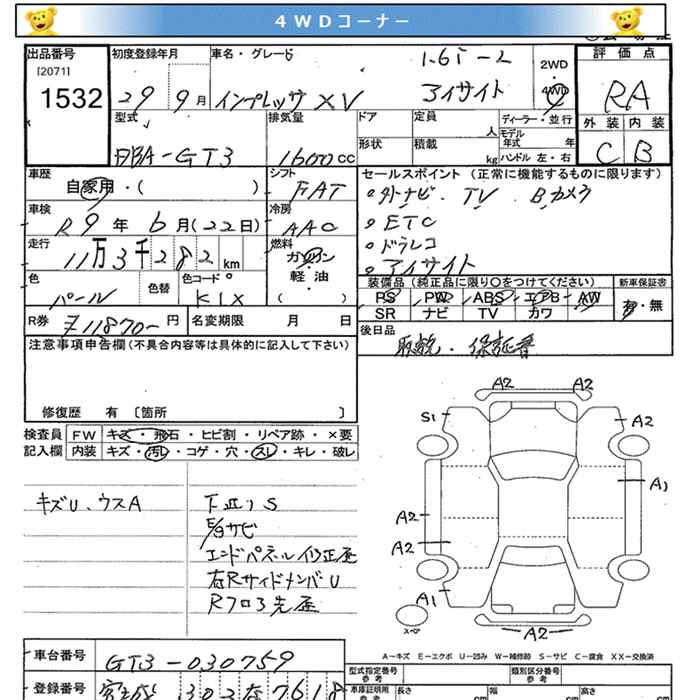 4WDコーナー
出品番号
[2071]
1532
初度登録年月
29 9月
車名・グレード
インプレッサXV
1.6i-L
アイサイト
2WD
4WD
評価点
RA
外装 内装
C B
型式
DBA-GT3
排気量
1600cc
ドア
定員
人
ディーラー・並行
モデル年式 年
形状
積載
kg
ハンドル 左・右
車歴
自家用・( )
シフト
FAT
セールスポイント (正常に機能するものに限ります)
外ナビ . TV . Bカメラ
ETC
ドラレコ
アイサイト
車検
R9年6月(22日)
冷房
AAC
走行
11万3千282km
燃料
ガソリン
・
軽油
( )
色
パール
色替
色コード
K1X
装備品(純正品に限り○をつけてください)
新車保証書
PS PW ABS エアB AW
SR ナビ TV カワ
有・無
R券
¥11870-円
名変期限 月 日
後日品
取説・保証書
注意事項申告欄(不具合内容等は具体的に記入して下さい)
修復歴 有 〔箇所 〕
検査員
記入欄
FW キズ・飛石・ヒビ割・リペア跡・×要
内装 キズ・汚レ・コゲ・穴・スレ・キレ・破レ
キズU、ウスA
下廻りS
E/gサビ
エンドパネル修正歴
右RサイドメンバU
Rフロア先歪
A2 A2
S1 A2
A1
A2
A2
A1
A2
スペア
A-キズ E-エクボ U-凹み W-補修跡 S-サビ C-腐食 XX-交換済
車台番号
GT3-030759
型式指定番号
参考
類別区分番号
参考
登録番号
車庫証明用
参考
長さ cm
幅 cm
高さ cm